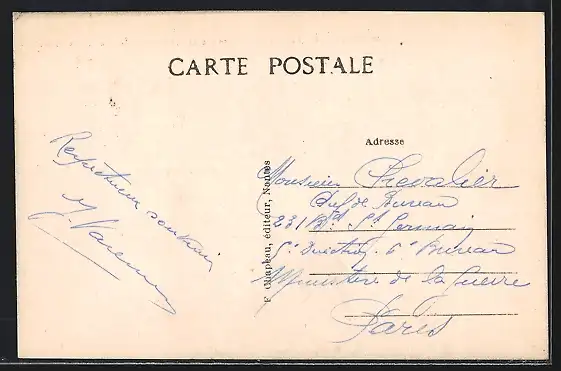 CARTE POSTALE
Respectueux souvenir
Y. Varenne
F. Chapeau, éditeur, Nantes
Adresse
Monsieur Chevalier
Chef de Bureau
231 Bd St Germain
5e Direction. 6e Bureau
Ministère de la Guerre
Paris